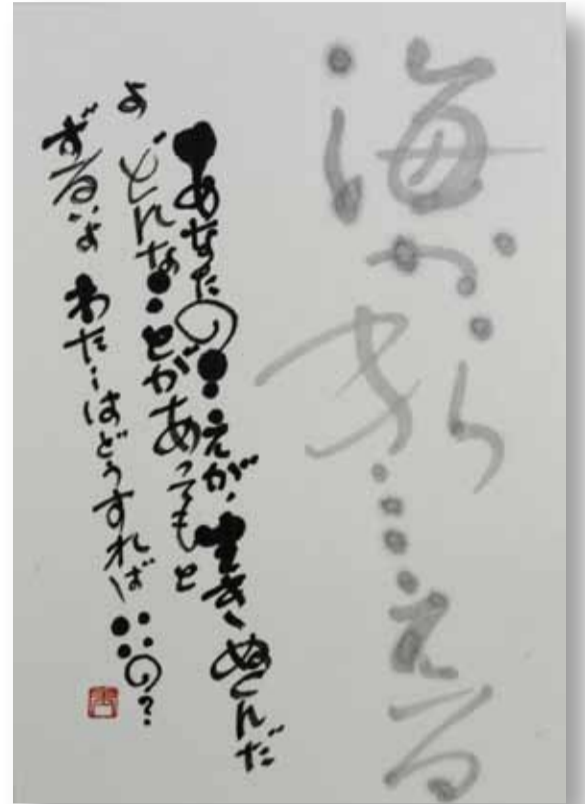 海から
きこえる
あなたのこえが、生きぬくんだ
よ どんなことがあってもと
ずるいよ わたしはどうすればいいの?